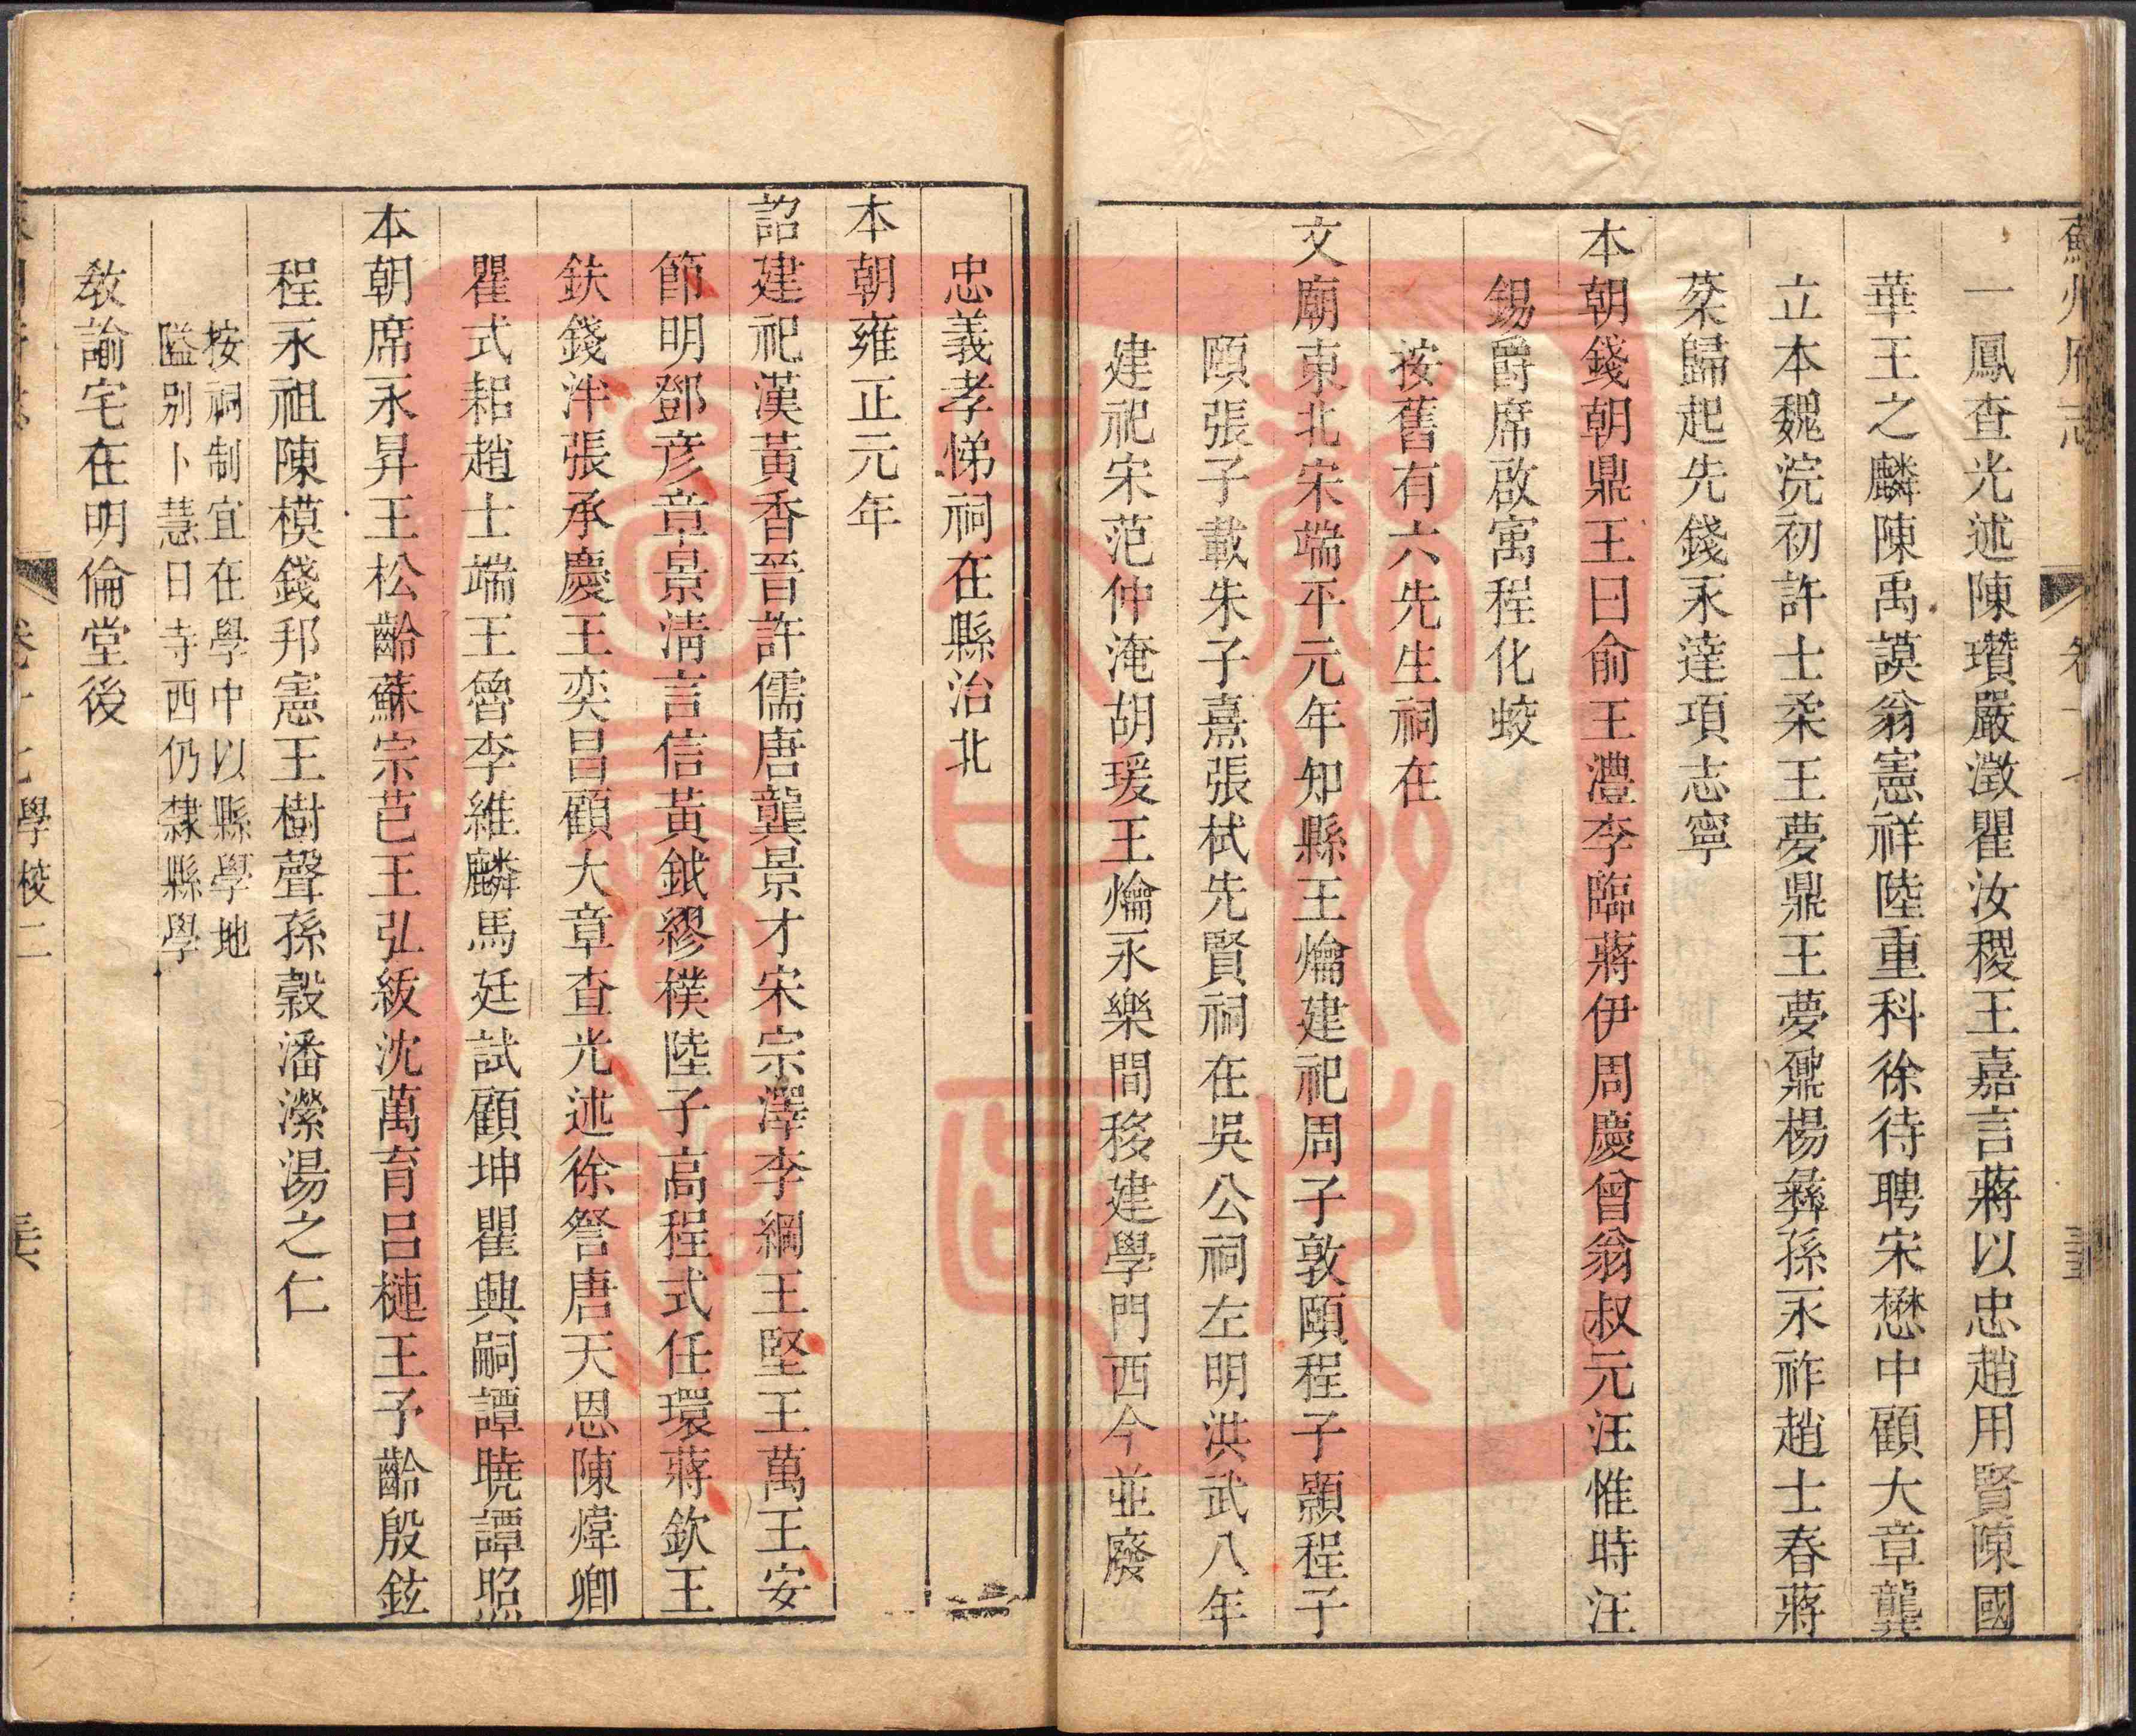 蘇州府志 卷十七
一鳳查光述陳瓚嚴澂瞿汝稷王嘉言蔣以忠趙用賢陳國
華王之麟陳禹謨翁憲祥陸重科徐待聘宋懋中顧大章龔
立本魏浣初許士柔王夢鼎王夢鼐楊彝孫永祚趙士春蔣
棻歸起先錢永達項志寧
本朝錢朝鼎王曰俞王澧李臨蔣伊周慶曾翁叔元汪惟時汪
錫爵席啟寓程化蛟
按舊有六先生祠在
文廟東北宋端平元年知縣王爚建祀周子敦頤程子顥程子
頤張子載朱子熹張栻先賢祠在吳公祠左明洪武八年
建祀宋范仲淹胡瑗王爚永樂間移建學門西今並廢
忠義孝悌祠在縣治北
本朝雍正元年
詔建祀漢黃香晉許儒唐龔景才宋宗澤李綱王堅王萬王安
節明鄧彥章景淸言信黃鉞繆樸陸子高程式任環蔣欽王
鈇錢泮張承慶王奕昌顧大章查光述徐詧唐天恩陳煒卿
瞿式耜趙士端王魯李維麟馬廷試顧坤瞿興嗣譚曉譚照
本朝席永昇王松齡蘇宗芭王弘緩沈萬育呂槤王予齡殷鉉
程永祖陳模錢邦憲王樹聲孫穀潘瀠湯之仁
按祠制宜在學中以縣學地
隘别卜慧日寺西仍隸縣學
敎諭宅在明倫堂後
卷十七 學校二